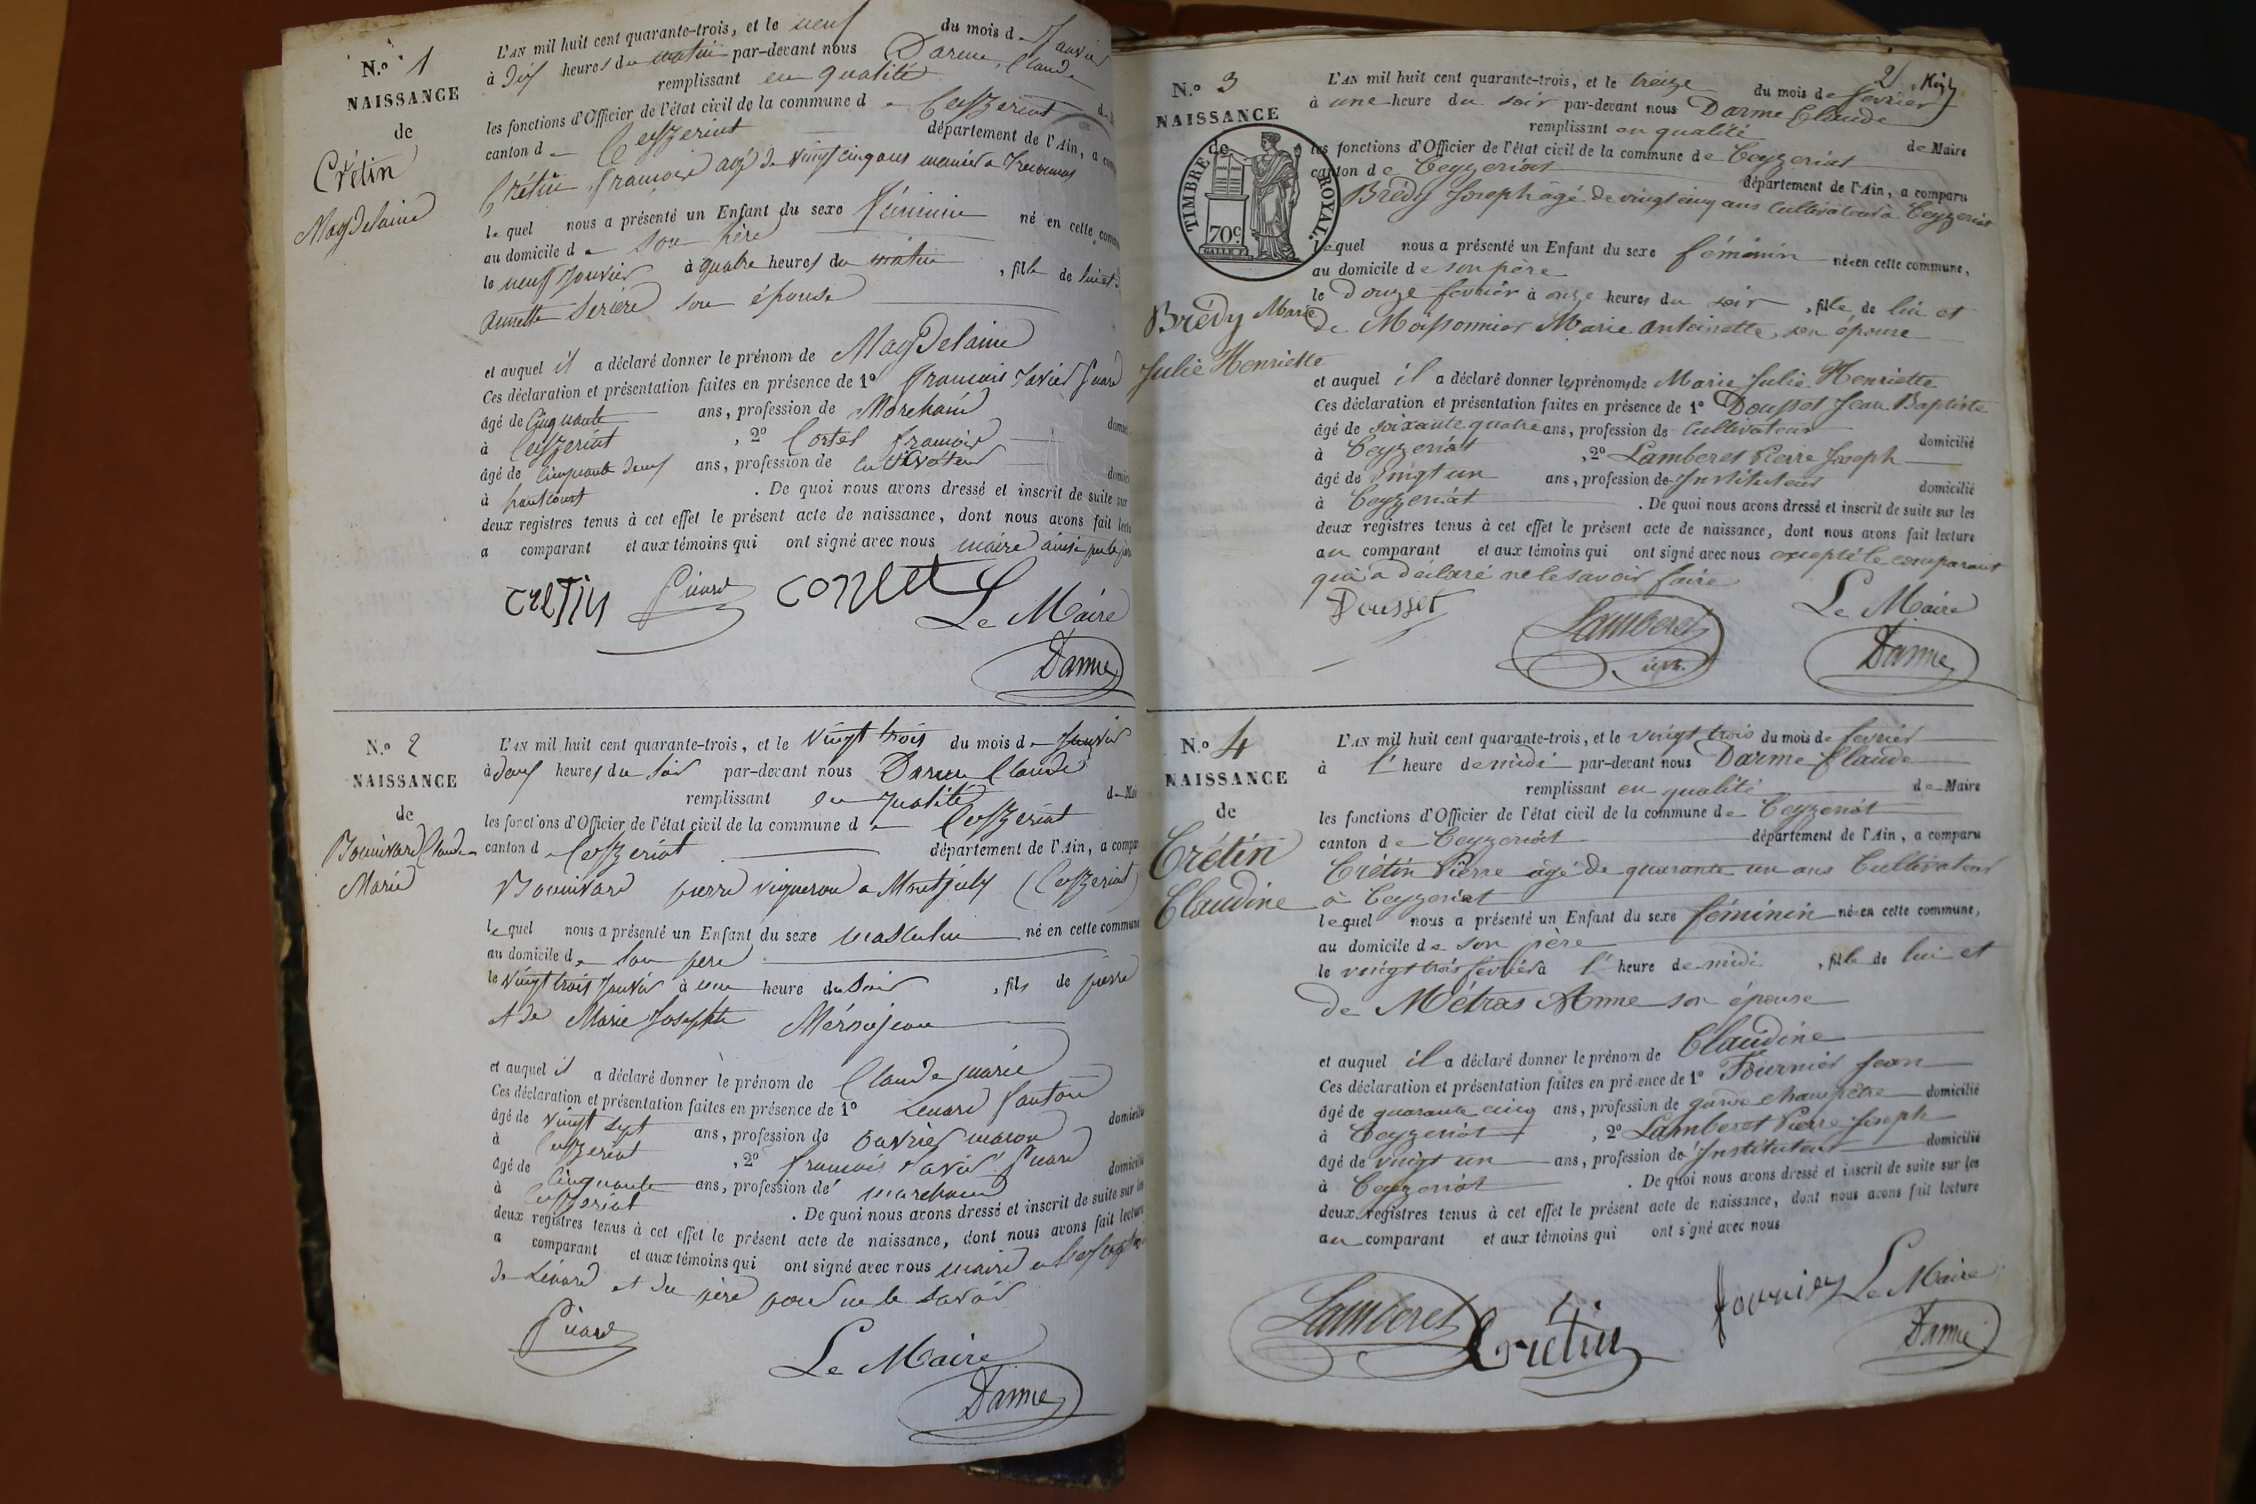 N.º 1
NAISSANCE
de
Crétin
Magdelaine
L'AN mil huit cent quarante-trois, et le neuf du mois de Janvier
à dix heures du matin par-devant nous Darme, Claude
remplissant en qualité
les fonctions d'Officier de l'état civil de la commune d Ceyzeriat
canton d Ceyzeriat département de l'Ain, a
Crétin françois agé de vingt cinq ans
lequel nous a présenté un Enfant du sexe féminin né en cette
au domicile de son père
le neuf Janvier à quatre heures du matin, fille de lui et
Annette son épouse
et auquel il a déclaré donner le prénom de Magdelaine
Ces déclaration et présentation faites en présence de 1º françois Xavier
âgé de Cinquante ans, profession de Marchand
à Ceyzeriat, 2º françois
âgé de cinquante deux ans, profession de cultivateur
à . De quoi nous avons dressé et inscrit de suite sur
deux registres tenus à cet effet le présent acte de naissance, dont nous avons fait
a comparant et aux témoins qui ont signé avec nous maire ainsi
cretin
Le Maire
Darme
N.º 2
NAISSANCE
de
Bonnivard Claude
Marie
L'AN mil huit cent quarante-trois, et le vingt trois du mois de Janvier
à deux heures du soir par-devant nous Darme Claude
remplissant en qualité de
les fonctions d'Officier de l'état civil de la commune d Ceyzeriat
canton d Ceyzeriat département de l'Ain, a
Bonnivard pierre vigneron a (Ceyzeriat)
lequel nous a présenté un Enfant du sexe masculin né en cette commune
au domicile de son pere
le vingt trois Janvier à une heure du soir, fils de pierre
et de Marie Josephte
et auquel il a déclaré donner le prénom de Claude marie
Ces déclaration et présentation faites en présence de 1º
âgé de vingt sept ans, profession de ouvrier maçon domicilié
à Ceyzeriat, 2º françois Xavier
âgé de Cinquante ans, profession de marchand domicilié
à Ceyzeriat . De quoi nous avons dressé et inscrit de suite sur les
deux registres tenus à cet effet le présent acte de naissance, dont nous avons fait lecture
a comparant et aux témoins qui ont signé avec nous maire
de et du père pour ne le savoir
Le Maire
Darme
2
N.º 3
NAISSANCE
de
TIMBRE ROYAL.
70c
Brédy Marie
Julie Henriette
L'AN mil huit cent quarante-trois, et le treize du mois de fevrier
à une heure du soir par-devant nous Darme Claude
remplissant en qualité de Maire
les fonctions d'Officier de l'état civil de la commune de Ceyzeriat
canton de Ceyzeriat département de l'Ain, a comparu
Brédy Joseph âgé de vingt cinq ans Cultivateur à Ceyzeriat
lequel nous a présenté un Enfant du sexe féminin née en cette commune,
au domicile de son père
le Douze fevrier à onze heures du soir, fille de lui et
de Moissonnier Marie Antoinette, son épouse
et auquel il a déclaré donner les prénoms de Marie Julie Henriette
Ces déclaration et présentation faites en présence de 1º Dousset Jean Baptiste
âgé de soixante quatre ans, profession de Cultivateur domicilié
à Ceyzeriat, 2º Lamberet Pierre Joseph
âgé de vingt un ans, profession de Instituteur domicilié
à Ceyzeriat . De quoi nous avons dressé et inscrit de suite sur les
deux registres tenus à cet effet le présent acte de naissance, dont nous avons fait lecture
au comparant et aux témoins qui ont signé avec nous excepté le comparant
qui a déclaré ne le savoir faire
Dousset
Lamberet
Le Maire
Darme
N.º 4
NAISSANCE
de
Crétin
Claudine
L'AN mil huit cent quarante-trois, et le vingt trois du mois de fevrier
à l' heure de midi par-devant nous Darme Claude
remplissant en qualité de Maire
les fonctions d'Officier de l'état civil de la commune de Ceyzeriat
canton de Ceyzeriat département de l'Ain, a comparu
Crétin Pierre agé de quarante un ans Cultivateur
à Ceyzeriat
lequel nous a présenté un Enfant du sexe féminin née en cette commune,
au domicile de son père
le vingt trois fevrier à l' heure de midi, fille de lui et
de Métras Anne son épouse
et auquel il a déclaré donner le prénom de Claudine
Ces déclaration et présentation faites en présence de 1º Fournier Jean
âgé de quarante cinq ans, profession de garde champêtre domicilié
à Ceyzeriat, 2º Lamberet Pierre Joseph
âgé de vingt un ans, profession de Instituteur domicilié
à Ceyzeriat . De quoi nous avons dressé et inscrit de suite sur les
deux registres tenus à cet effet le présent acte de naissance, dont nous avons fait lecture
au comparant et aux témoins qui ont signé avec nous
Lamberet
Crétin
fournier
Le Maire
Darme